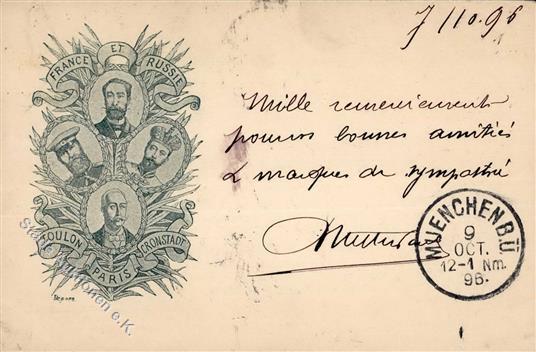 7/10.96
FRANCE ET RUSSIE
Mille remerciements
pour vos bonnes amitiés
& marques de sympathie
TOULON
PARIS
CRONSTADT
MUENCHENBU
9
OCT.
12-1 Nm.
96.
e.K.